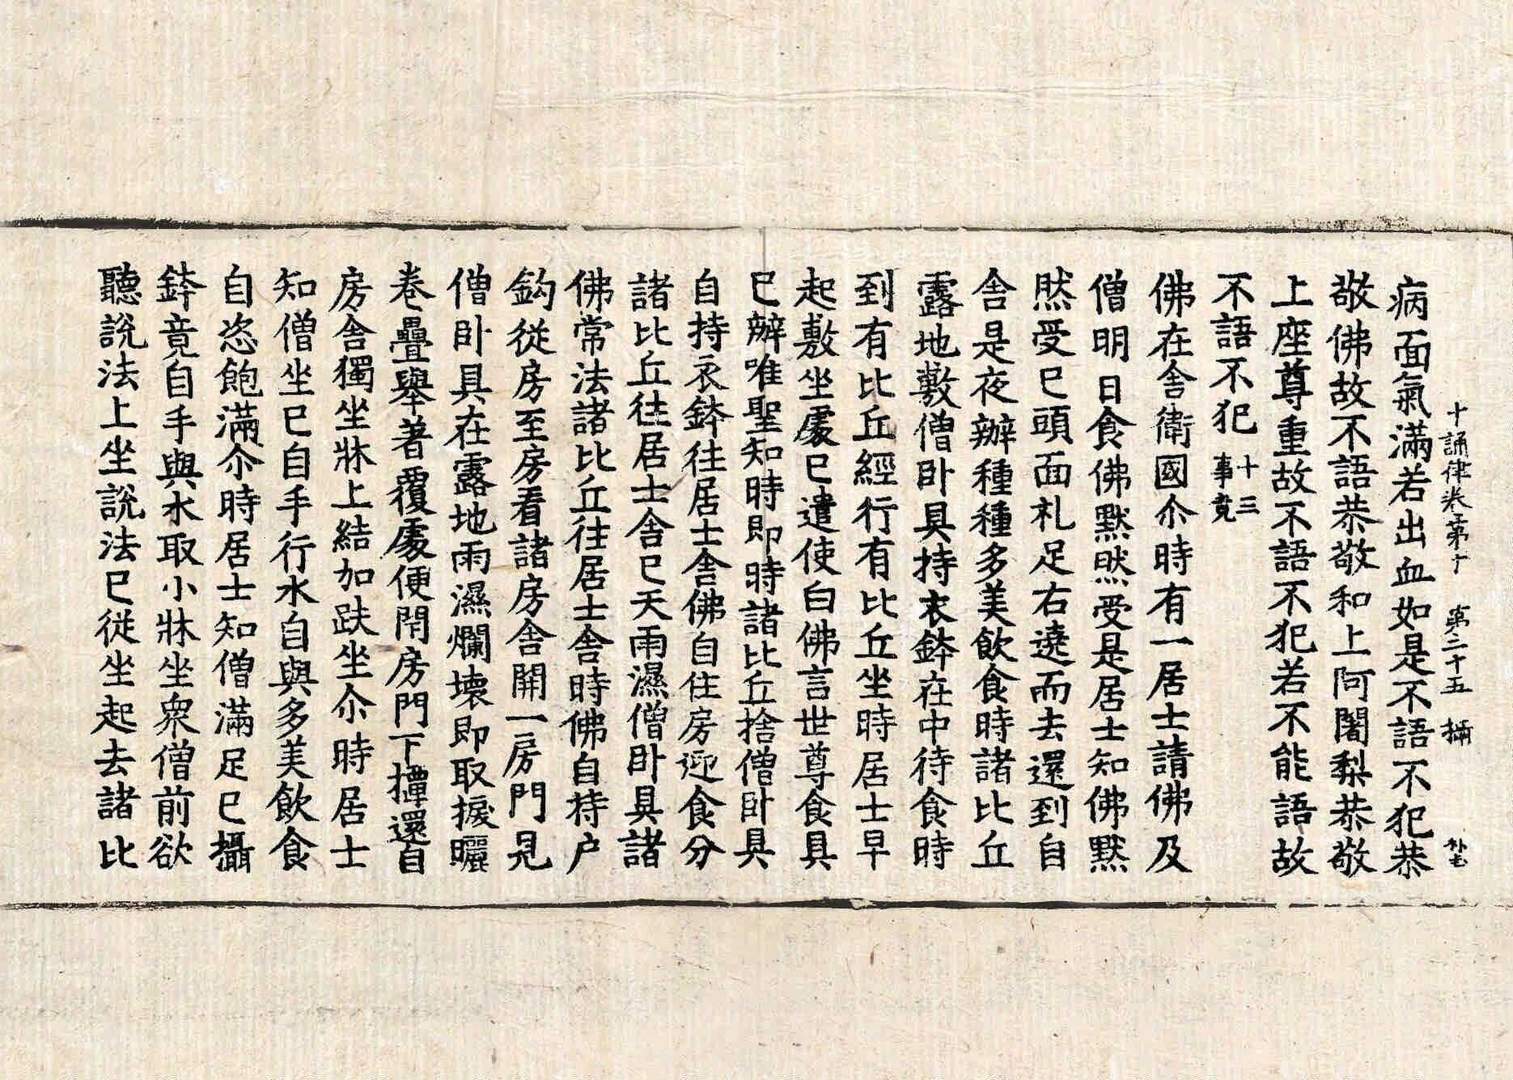 十誦律卷第十 第二十五 攝
病面氣滿若出血如是不語不犯恭
敬佛故不語恭敬和上阿闍梨恭敬
上座尊重故不語不犯若不能語故
不語不犯 十三事竟
佛在舍衛國尒時有一居士請佛及
僧明日食佛默然受是居士知佛默
然受已頭面礼足右遶而去還到自
舍是夜辦種種多美飲食時諸比丘
露地敷僧卧具持衣鉢在中待食時
到有比丘經行有比丘坐時居士早
起敷坐處已遣使白佛言世尊食具
已辦唯聖知時即時諸比丘捨僧卧具
自持衣鉢往居士舍佛自住房迎食分
諸比丘往居士舍已天雨濕僧卧具諸
佛常法諸比丘往居士舍時佛自持户
鈎從房至房看諸房舍開一房門見
僧卧具在露地雨濕爛壊即取捩曬
卷疊舉著覆處便閇房門下撣還自
房舍獨坐牀上結加趺坐尒時居士
知僧坐已自手行水自與多美飲食
自恣飽滿尒時居士知僧滿足已攝
鉢竟自手與水取小牀坐衆僧前欲
聽說法上坐說法已從坐起去諸比